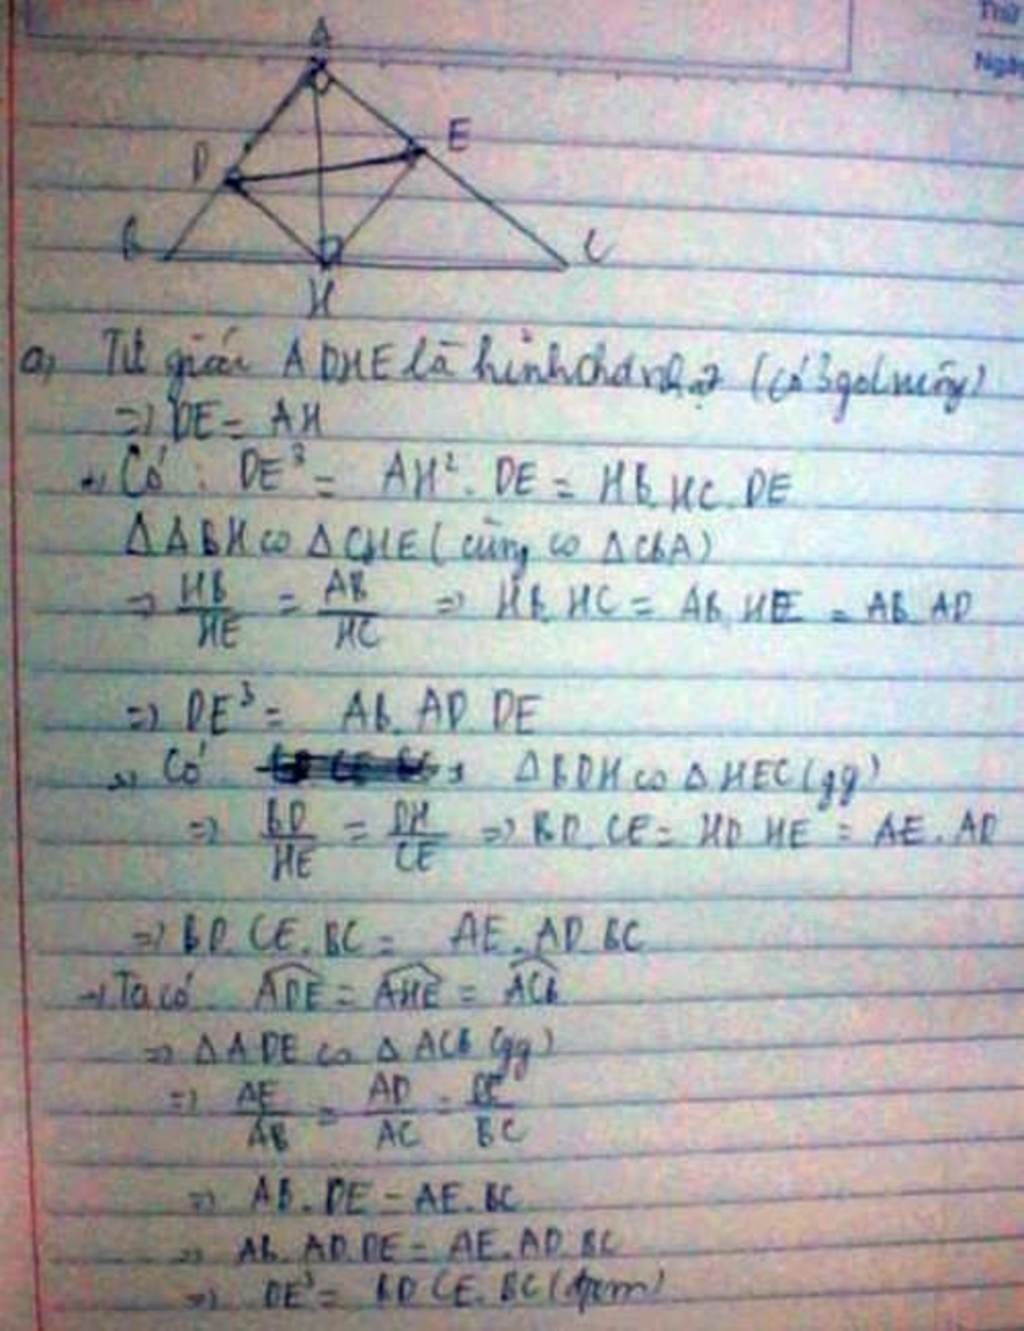 Thứ
Ngày
A
D
E
B
C
H
a) Tứ giác ADHE là hình chữ nhật (có 3 góc vuông)
=> DE = AH
→ Có : DE³ = AH² . DE = HB.HC.DE
Δ ABH ∽ Δ CHE (cùng ∽ Δ CBA)
=> HB/HE = AB/HC => HB.HC = AB.HE = AB.AD
=> DE³ = AB.AD.DE
→ Có Δ BDH ∽ Δ HEC (gg)
=> BD/HE = DH/CE => BD.CE = HD.HE = AE.AD
=> BD.CE.BC = AE.AD.BC
→ Ta có ADE = AHE = ACB
=> Δ ADE ∽ Δ ACB (gg)
=> AE/AB = AD/AC = DE/BC
=> AB.DE = AE.BC
=> AB.AD.DE = AE.AD.BC
=> DE³ = BD.CE.BC (đpcm)